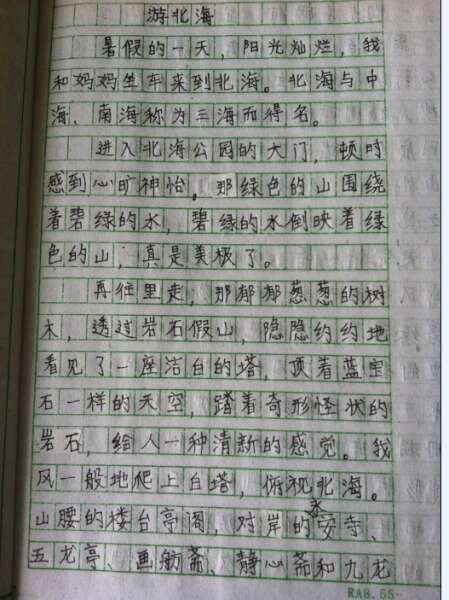 游北海
暑假的一天，阳光灿烂，我
和妈妈坐车来到北海。北海与中
海、南海称为三海而得名。
进入北海公园的大门，顿时
感到心旷神怡。那绿色的山围绕
着碧绿的水，碧绿的水倒映着绿
色的山，真是美极了。
再往里走，那郁郁葱葱的树
木，透过岩石假山，隐隐约约地
看见了一座洁白的塔，顶着蓝宝
石一样的天空，踏着奇形怪状的
岩石，给人一种清新的感觉。我
风一般地爬上白塔，俯视北海。
山腰的楼台亭阁，对岸的永安寺、
五龙亭、画舫斋、静心斋和九龙
RA8.55